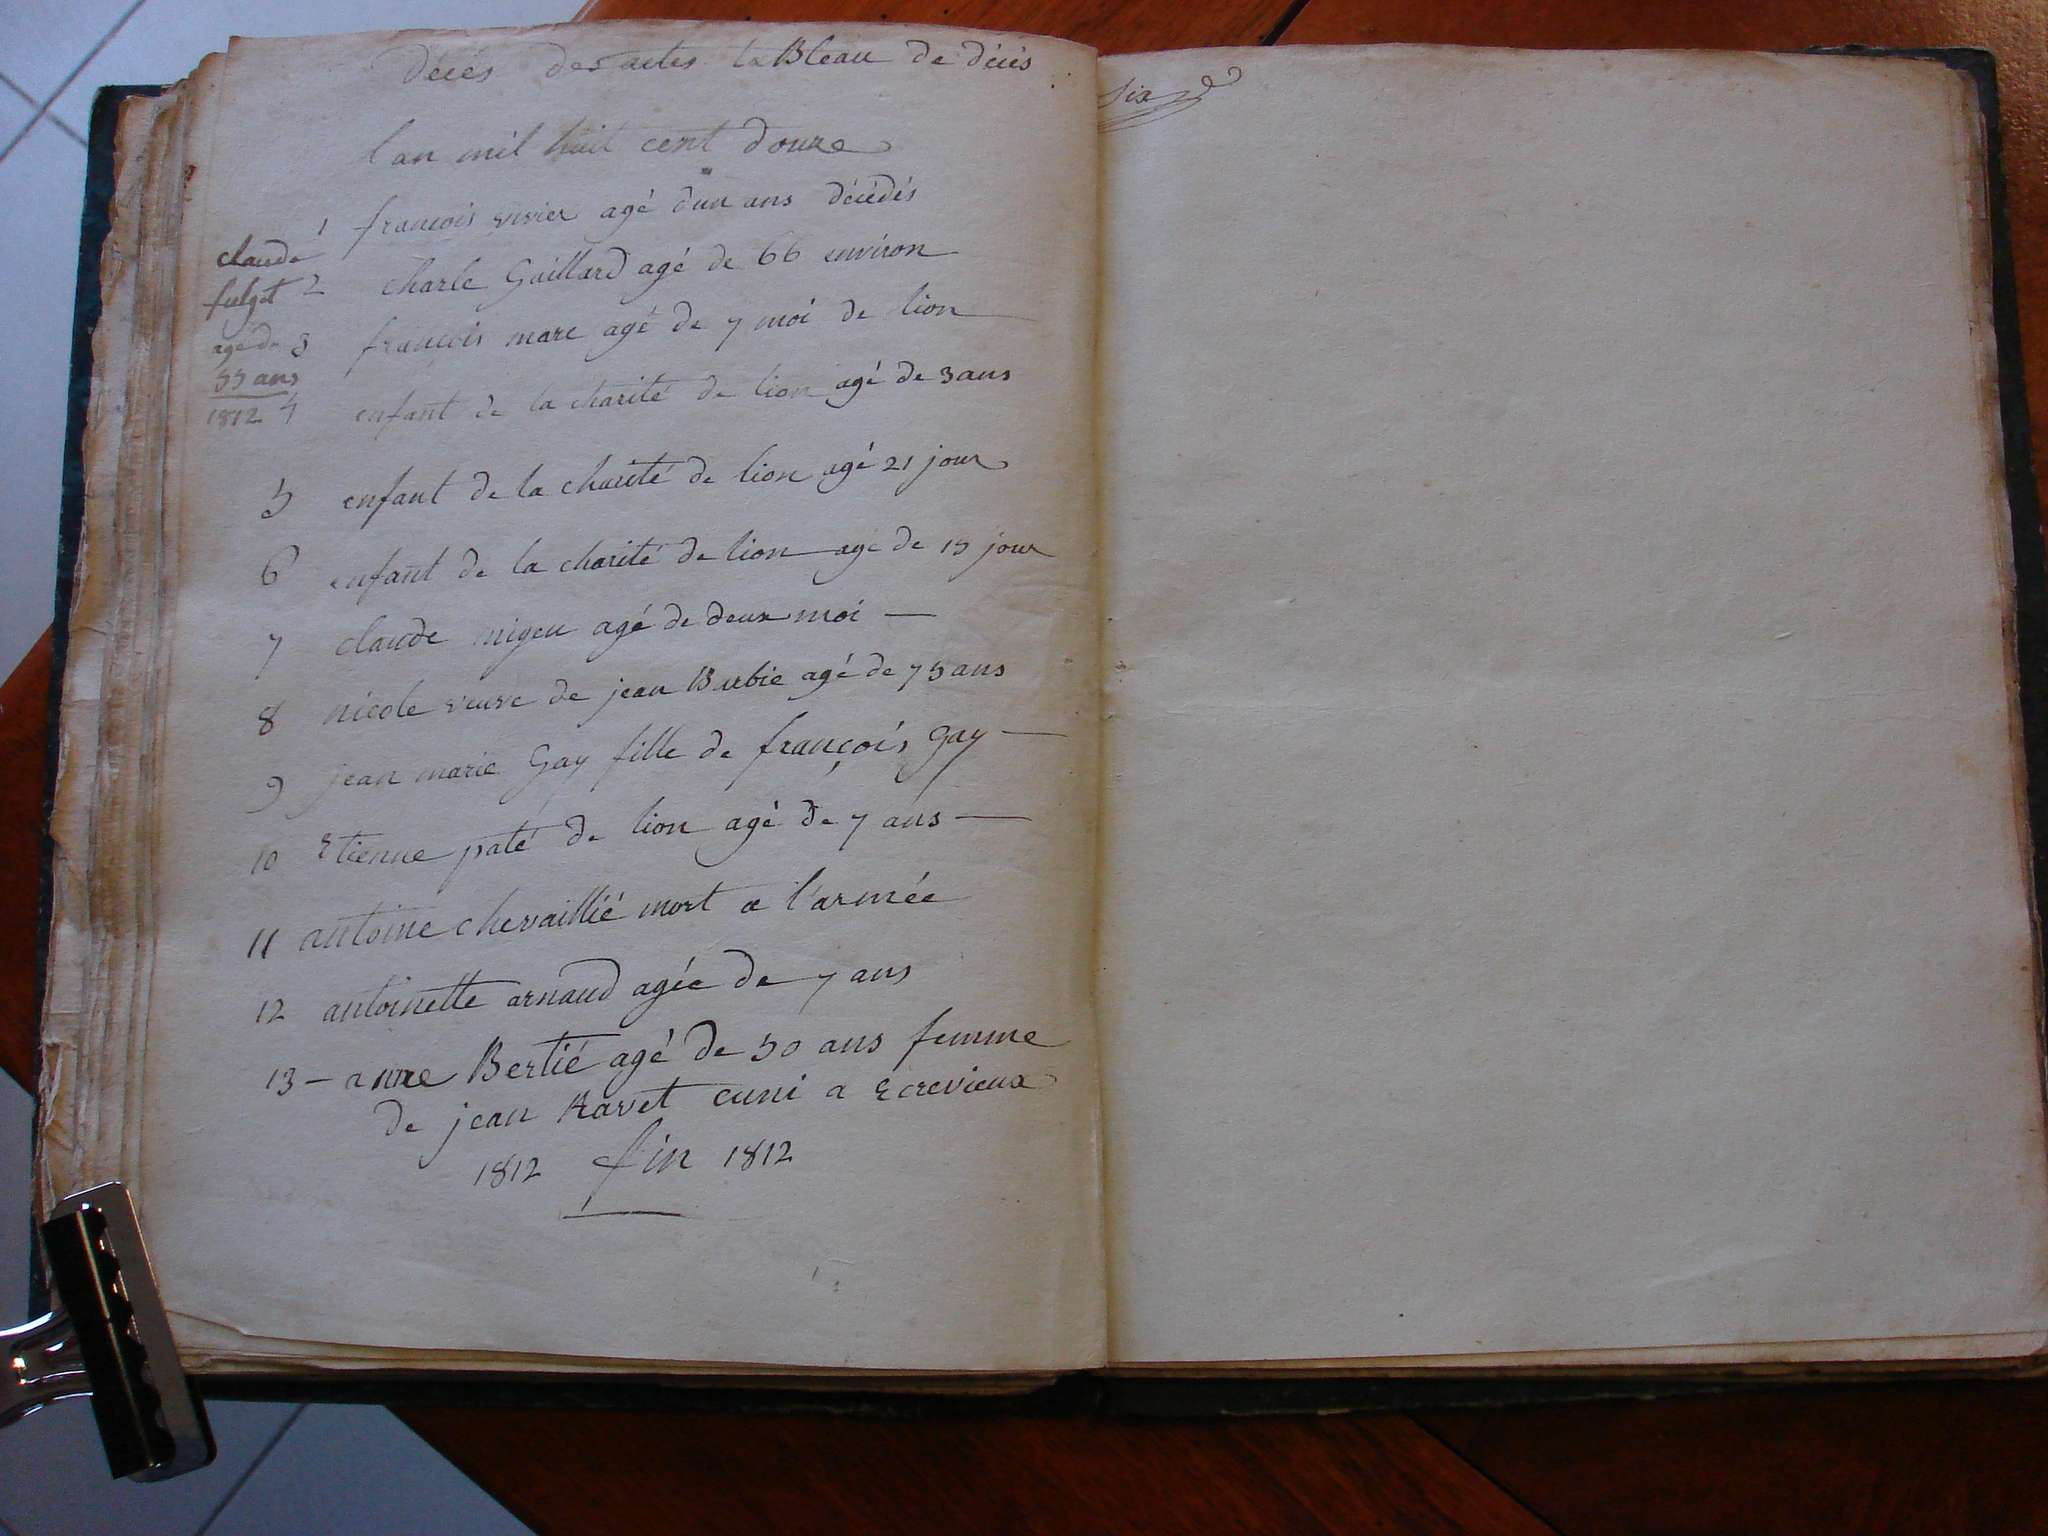 décés des actes tableau de décés
six
l'an mil huit cent douze
1 francois vivier agé d'un ans décédés
claude
fulget
agé de
55 ans
1812
2 charle Gaillard agé de 66 environ
3 francois marc agé de 7 moi de lion
4 enfant de la charité de lion agé de 3 ans
5 enfant de la charité de lion agé 21 jour
6 enfant de la charité de lion agé de 15 jour
7 claude migeu agé de deux moi
8 nicole veuve de jean Barbie agé de 75 ans
9 jean marie Gay fille de françois Gay
10 Etienne paté de lion agé de 7 ans
11 antoine chevaillié mort a l'armée
12 antoinette arnaud agée de 7 ans
13 - anne Bertié agé de 50 ans femme
de jean Ravet cuni a Ecrevieux
1812 fin 1812